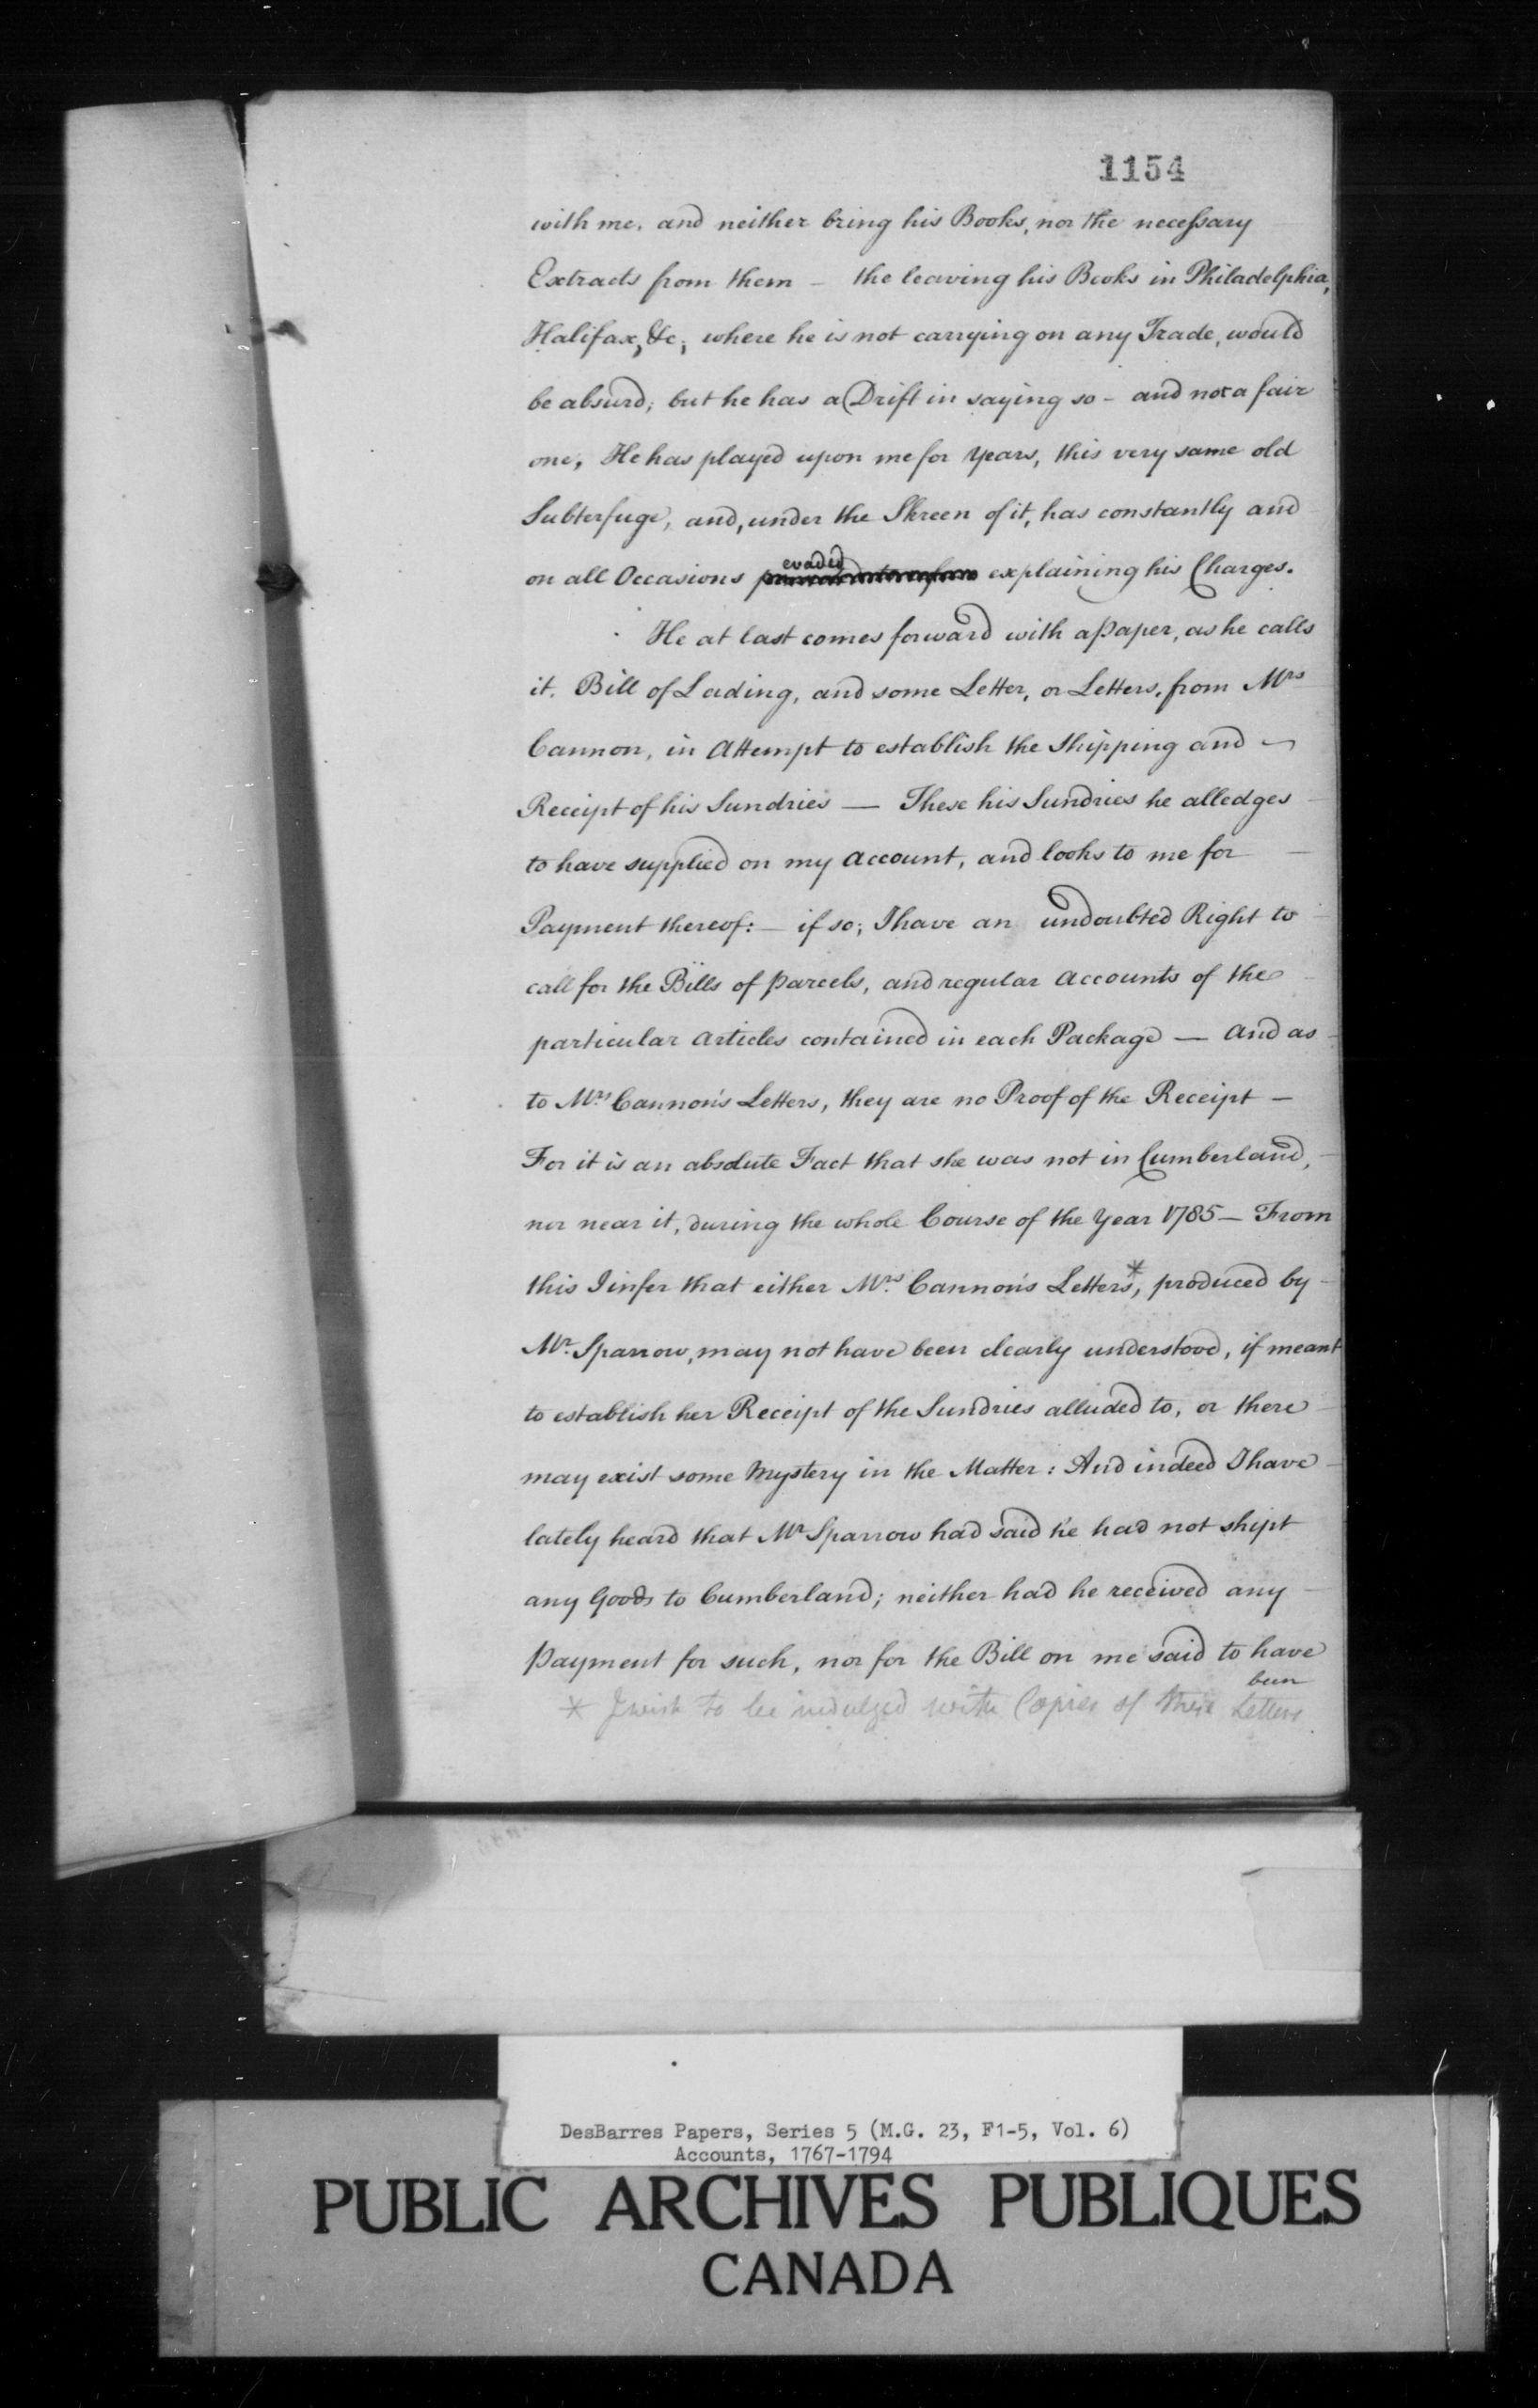 1154
with me, and neither bring his Books, nor the necessary
Extracts from them — the leaving his Books in Philadelphia,
Halifax, &c; where he is not carrying on any Trade, would
be absurd; but he has a Drift in saying so — and not a fair
one, He has played upon me for Years, this very same old
Subterfuge, and, under the Skreen of it, has constantly and
on all Occasions evaded explaining his Charges.
He at last comes forward with a Paper, as he calls
it, Bill of Lading, and some Letter, or Letters, from Mrs
Cannon, in Attempt to establish the Shipping and
Receipt of his Sundries — These his Sundries he alledges
to have supplied on my Account, and looks to me for
Payment thereof: — if so; I have an undoubted Right to
call for the Bills of Parcels, and regular Accounts of the
particular Articles contained in each Package — And as
to Mrs Cannon's Letters, they are no Proof of the Receipt —
For it is an absolute Fact that she was not in Cumberland,
nor near it, during the whole Course of the Year 1785 — From
this I infer that either Mrs Cannon's Letters*, produced by
Mr. Sparrow, may not have been clearly understood, if meant
to establish her Receipt of the Sundries alluded to, or there
may exist some Mystery in the Matter: And indeed I have
lately heard that Mr Sparrow had said he had not shipt
any Goods to Cumberland; neither had he received any
Payment for such, nor for the Bill on me said to have
been
* I wish to be indulged with Copies of these Letters
DesBarres Papers, Series 5 (M.G. 23, F1-5, Vol. 6)
Accounts, 1767-1794
PUBLIC ARCHIVES PUBLIQUES
CANADA